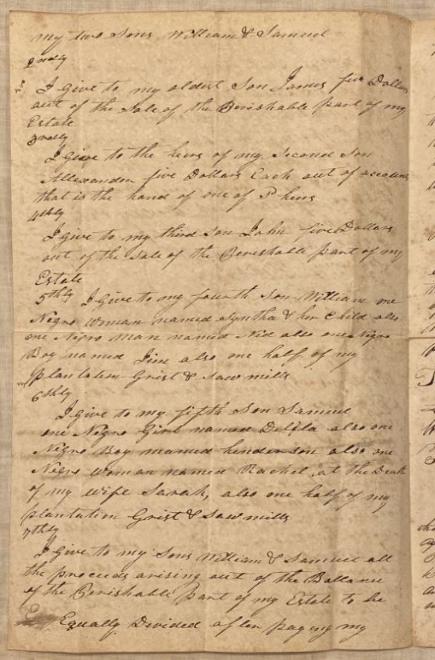 my two Sons William & Samuel
2ndly
I give to my oldest Son James five Dollars
out of the Sale of the Perishable part of my
Estate
3rdly
I give to the heirs of my Second Son
Allexander five Dollars Each out of
that is the hand of one of
4thly
I give to my third Son John five Dollars
out of the Sale of the Perishable part of my
Estate
5thly I give to my fourth Son William one
Negro Woman named Syntha & her Child also
one Negro Man named Ned also one Negro
Boy named also one half of my
plantation Grist & Saw mills
6thly
I give to my fifth Son Samuel
one Negro Girl named also one
Negro Boy named henderson also one
Negro Woman named Rachel at the Death
of my Wife Sarah, also one half of my
plantation Grist & Saw mills
7thly
I give to my Sons William & Samuel all
the proceeds arising out of the Ballance
of the Perishable part of my Estate to be
Equally Divided after paying my